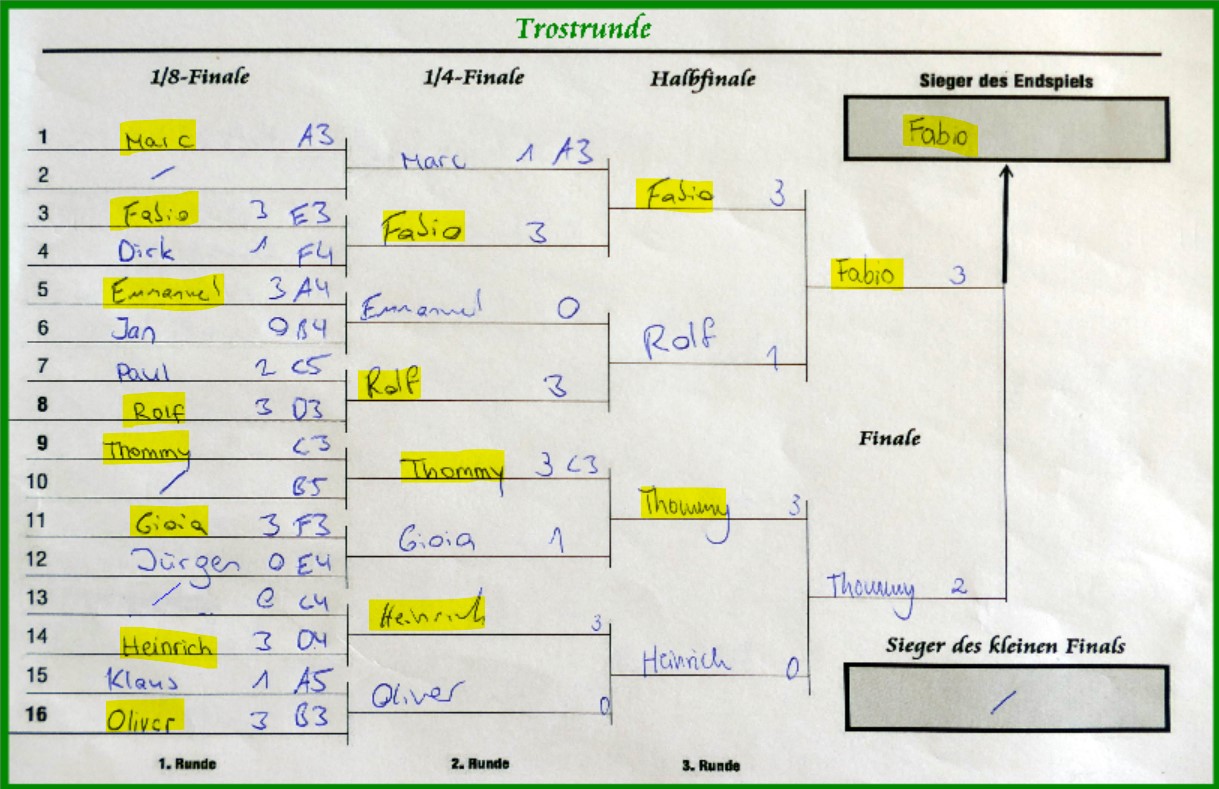 Trostrunde
1/8-Finale 1/4-Finale Halbfinale Sieger des Endspiels
Fabio
1 Marc A3
2 /
Marc 1 A3
3 Fabio 3 E3
4 Dirk 1 F4
Fabio 3
Fabio 3
5 Emmanuel 3 A4
6 Jan 0 B4
Emmanuel 0
Fabio 3
7 Paul 2 C5
8 Rolf 3 D3
Rolf 3
Rolf 1
Finale
9 Thommy C3
10 / B5
Thommy 3 C3
11 Gioia 3 F3
12 Jürgen 0 E4
Gioia 1
Thommy 3
13 / 0 C4
14 Heinrich 3 D4
Heinrich 3
Thommy 2
15 Klaus 1 A5
16 Oliver 3 B3
Oliver 0
Heinrich 0
Sieger des kleinen Finals
/
1. Runde 2. Runde 3. Runde